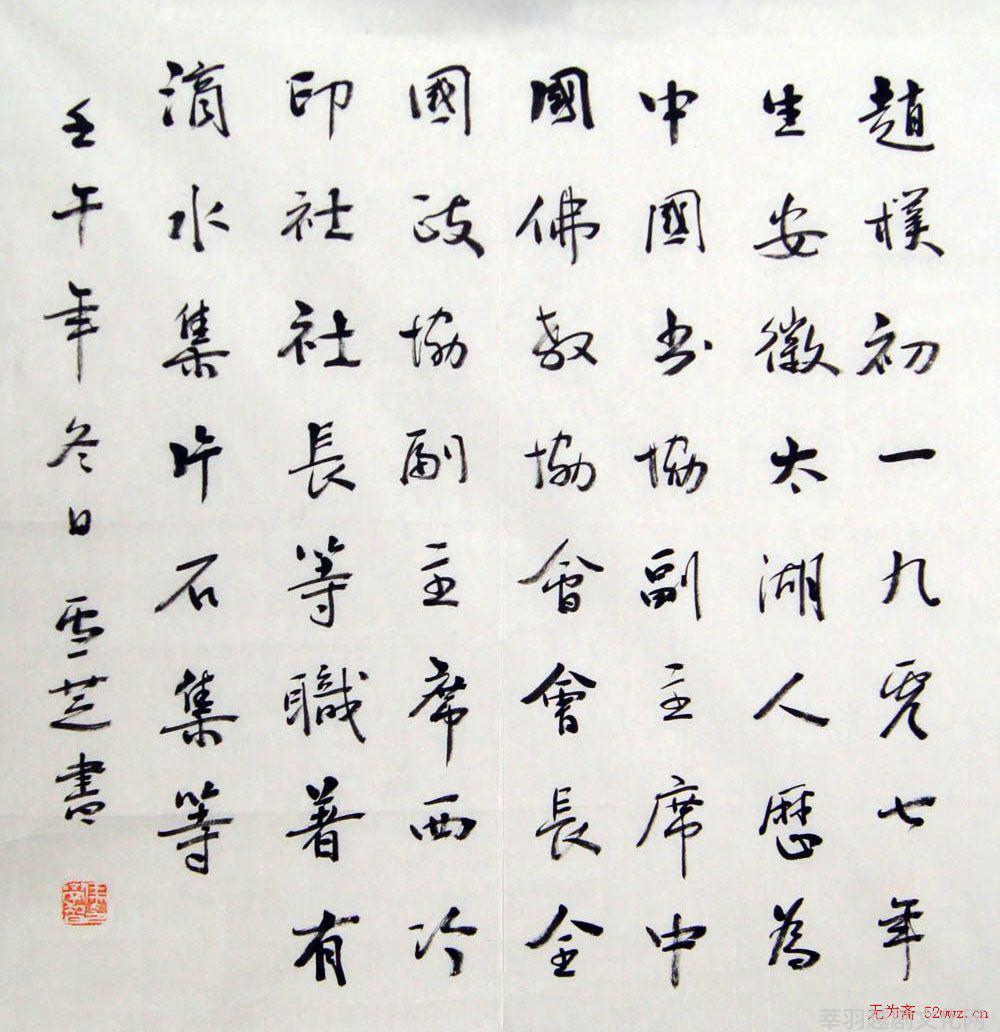 趙樸初一九零七年
生安徽太湖人歷為
中國书協副主席中
國佛教協會會長全
國政協副主席西冷
印社社長等職著有
滴水集片石集等
壬午年冬日雪芝書
无为斋 52wwz.cn